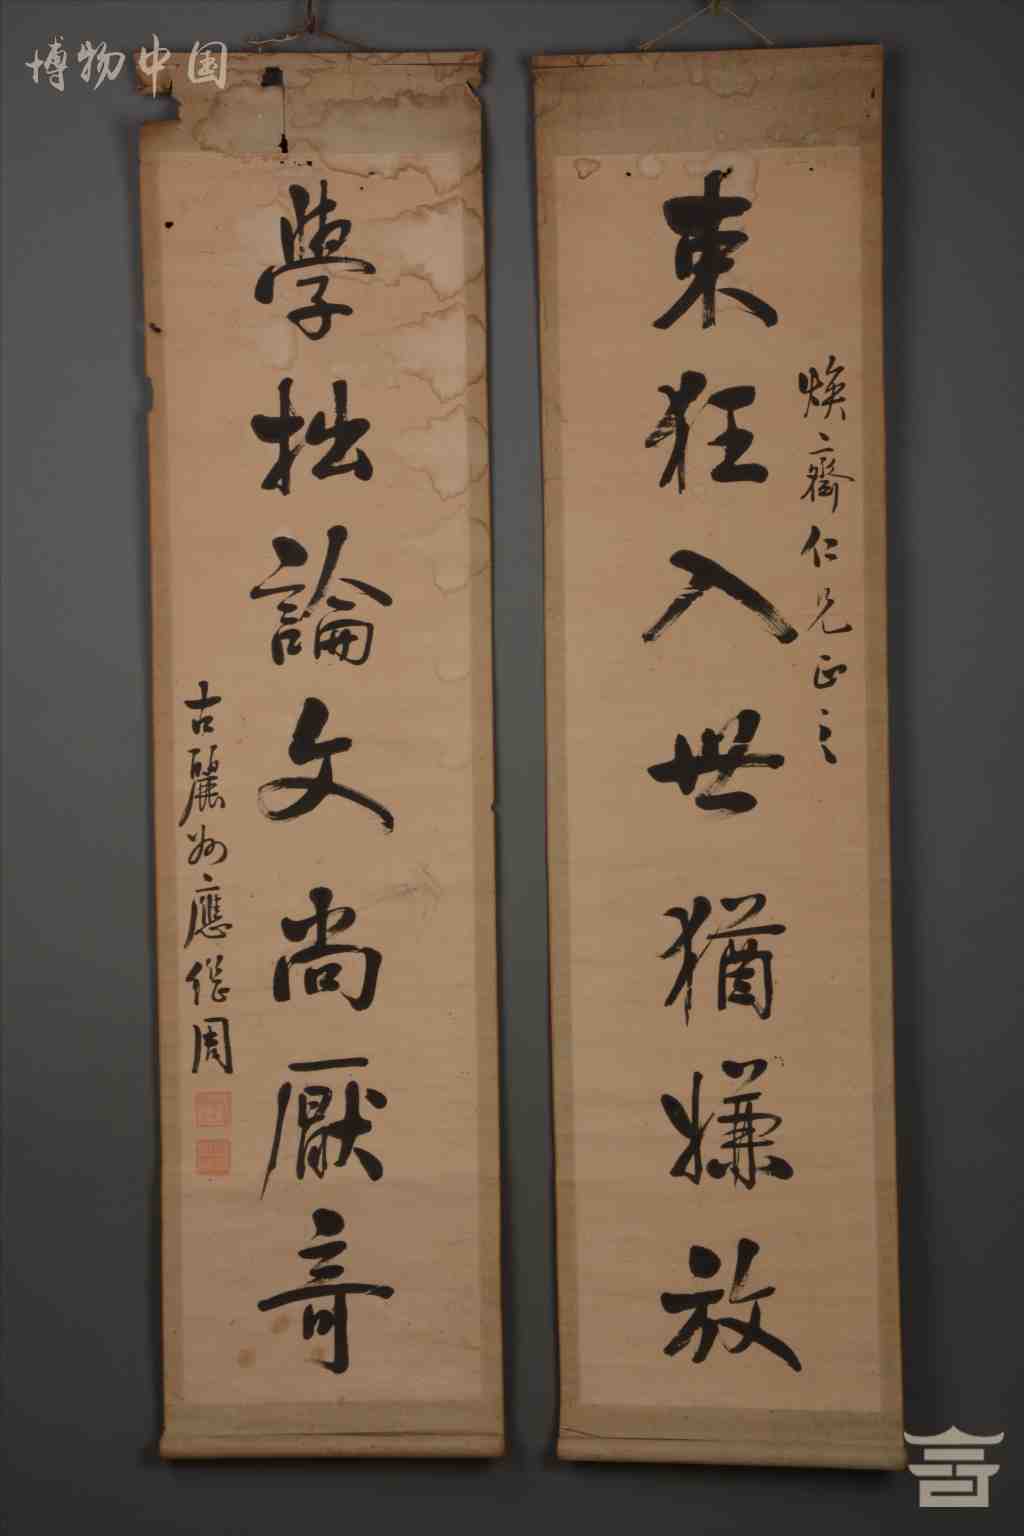 博物中国
焕齋仁兄正之
束狂入世猶嫌放
學拙論文尚厭奇
古麗州應修周